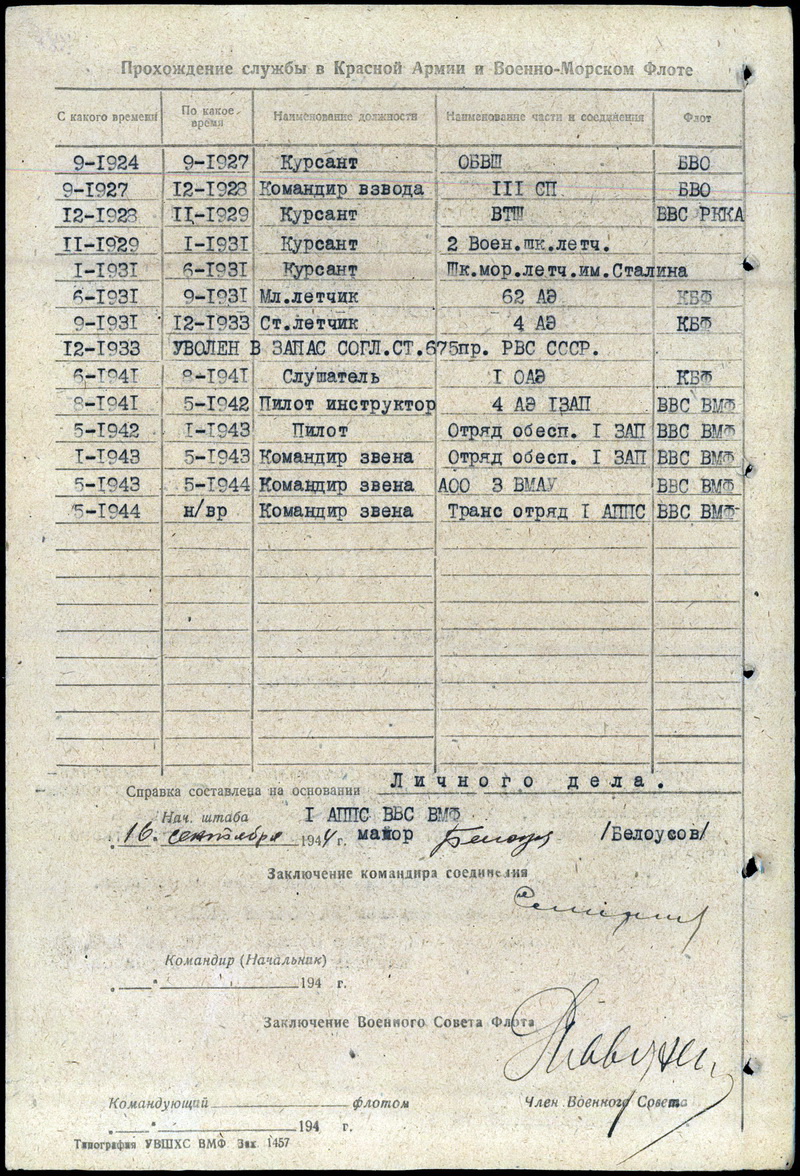 Прохождение службы в Красной Армии и Военно-Морском Флоте
С какого времени По какое время Наименование должности Наименование части и соединения Флот
9-1924 9-1927 Курсант ОБВШ БВО
9-1927 12-1928 Командир взвода III СП БВО
12-1928 II-1929 Курсант ВТШ ВВС РККА
II-1929 I-1931 Курсант 2 Воен.шк.летч.
I-1931 6-1931 Курсант Шк.мор.летч.им.Сталина
6-1931 9-1931 Мл.летчик 62 АЭ КБФ
9-1931 12-1933 Ст.летчик 4 АЭ КБФ
12-1933 УВОЛЕН В ЗАПАС СОГЛ.СТ.675пр. РВС СССР.
6-1941 8-1941 Слушатель I ОАЭ КБФ
8-1941 5-1942 Пилот инструктор 4 АЭ IЗАП ВВС ВМФ
5-1942 I-1943 Пилот Отряд обесп. I ЗАП ВВС ВМФ
I-1943 5-1943 Командир звена Отряд обесп. I ЗАП ВВС ВМФ
5-1943 5-1944 Командир звена АОО 3 ВМАУ ВВС ВМФ
5-1944 н/вр Командир звена Транс отряд I АППС ВВС ВМФ
Справка составлена на основании Личного дела.
Нач. штаба I АППС ВВС ВМФ
"16" сентября 1944 г. майор /Белоусов/
Заключение командира соединения
Командир (Начальник)
" " 194 г.
Заключение Военного Совета Флота
Командующий флотом Член Военного Совета
" " 194 г.
Типография УВШХС ВМФ Зак. 1457